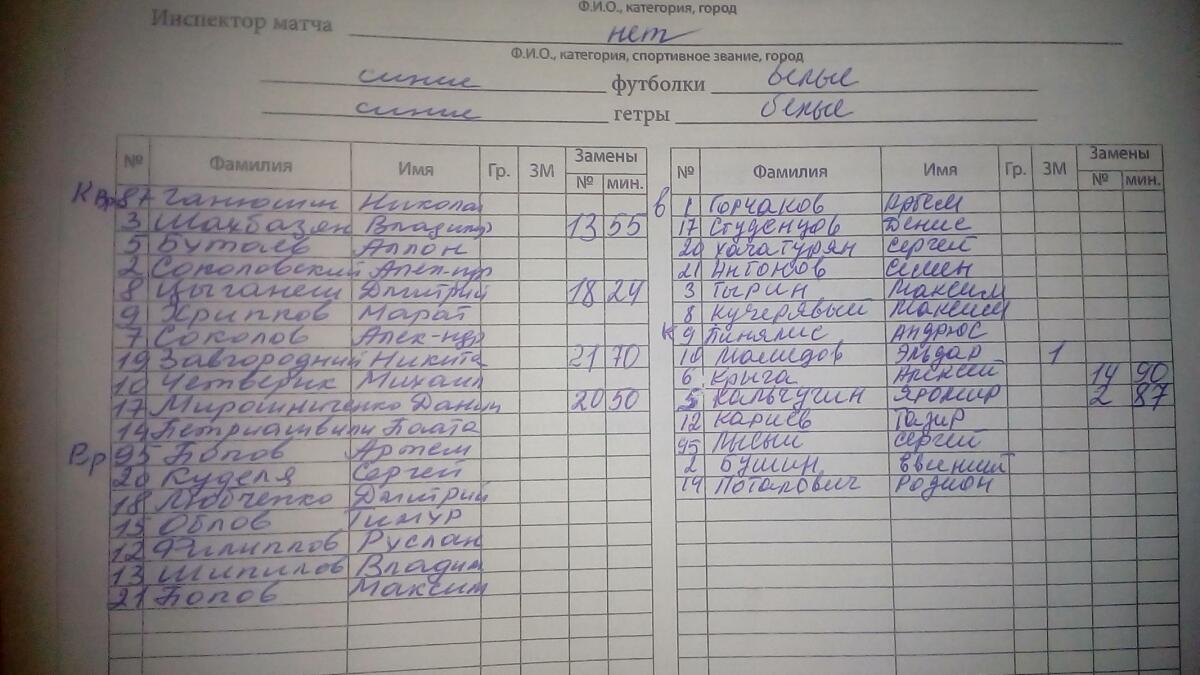 Ф.И.О., категория, город
Инспектор матча нет
Ф.И.О., категория, спортивное звание, город
синие футболки белые
синие гетры белые
№ Фамилия Имя Гр. ЗМ Замены № мин.
К Вр 87 Ганюшин Николай
3 Шахбазян Владимир 13 55
5 Бутаев Аллон
2 Соколовский Алек-нр
8 Цыганеш Дмитрий 18 24
9 Хрипков Марат
7 Соколов Алек-ндр
19 Завгородний Никита 21 70
10 Четверик Михаил
17 Мирошниченко Данил 20 50
14 Петриашвили Паата
Вр 95 Попов Артем
20 Куделя Сергей
18 Любченко Дмитрий
15 Облов Тимур
12 Филиппов Руслан
13 Шипилов Владим
21 Попов Максим
№ Фамилия Имя Гр. ЗМ Замены № мин.
в 1 Горчаков Артем
17 Студенцов Денис
20 Хачатурян Сергей
21 Антонов Семен
3 Тырин Максим
8 Кучерявый Максим
к 9 Пинялис Андрюс
10 Мамедов Эльдар 1
6 Крыга Алексей 14 90
5 Кальчугин Яромир 2 87
12 Кариев Тагир
95 Лысый Сергей
2 Бушин Евгений
14 Потапович Родион